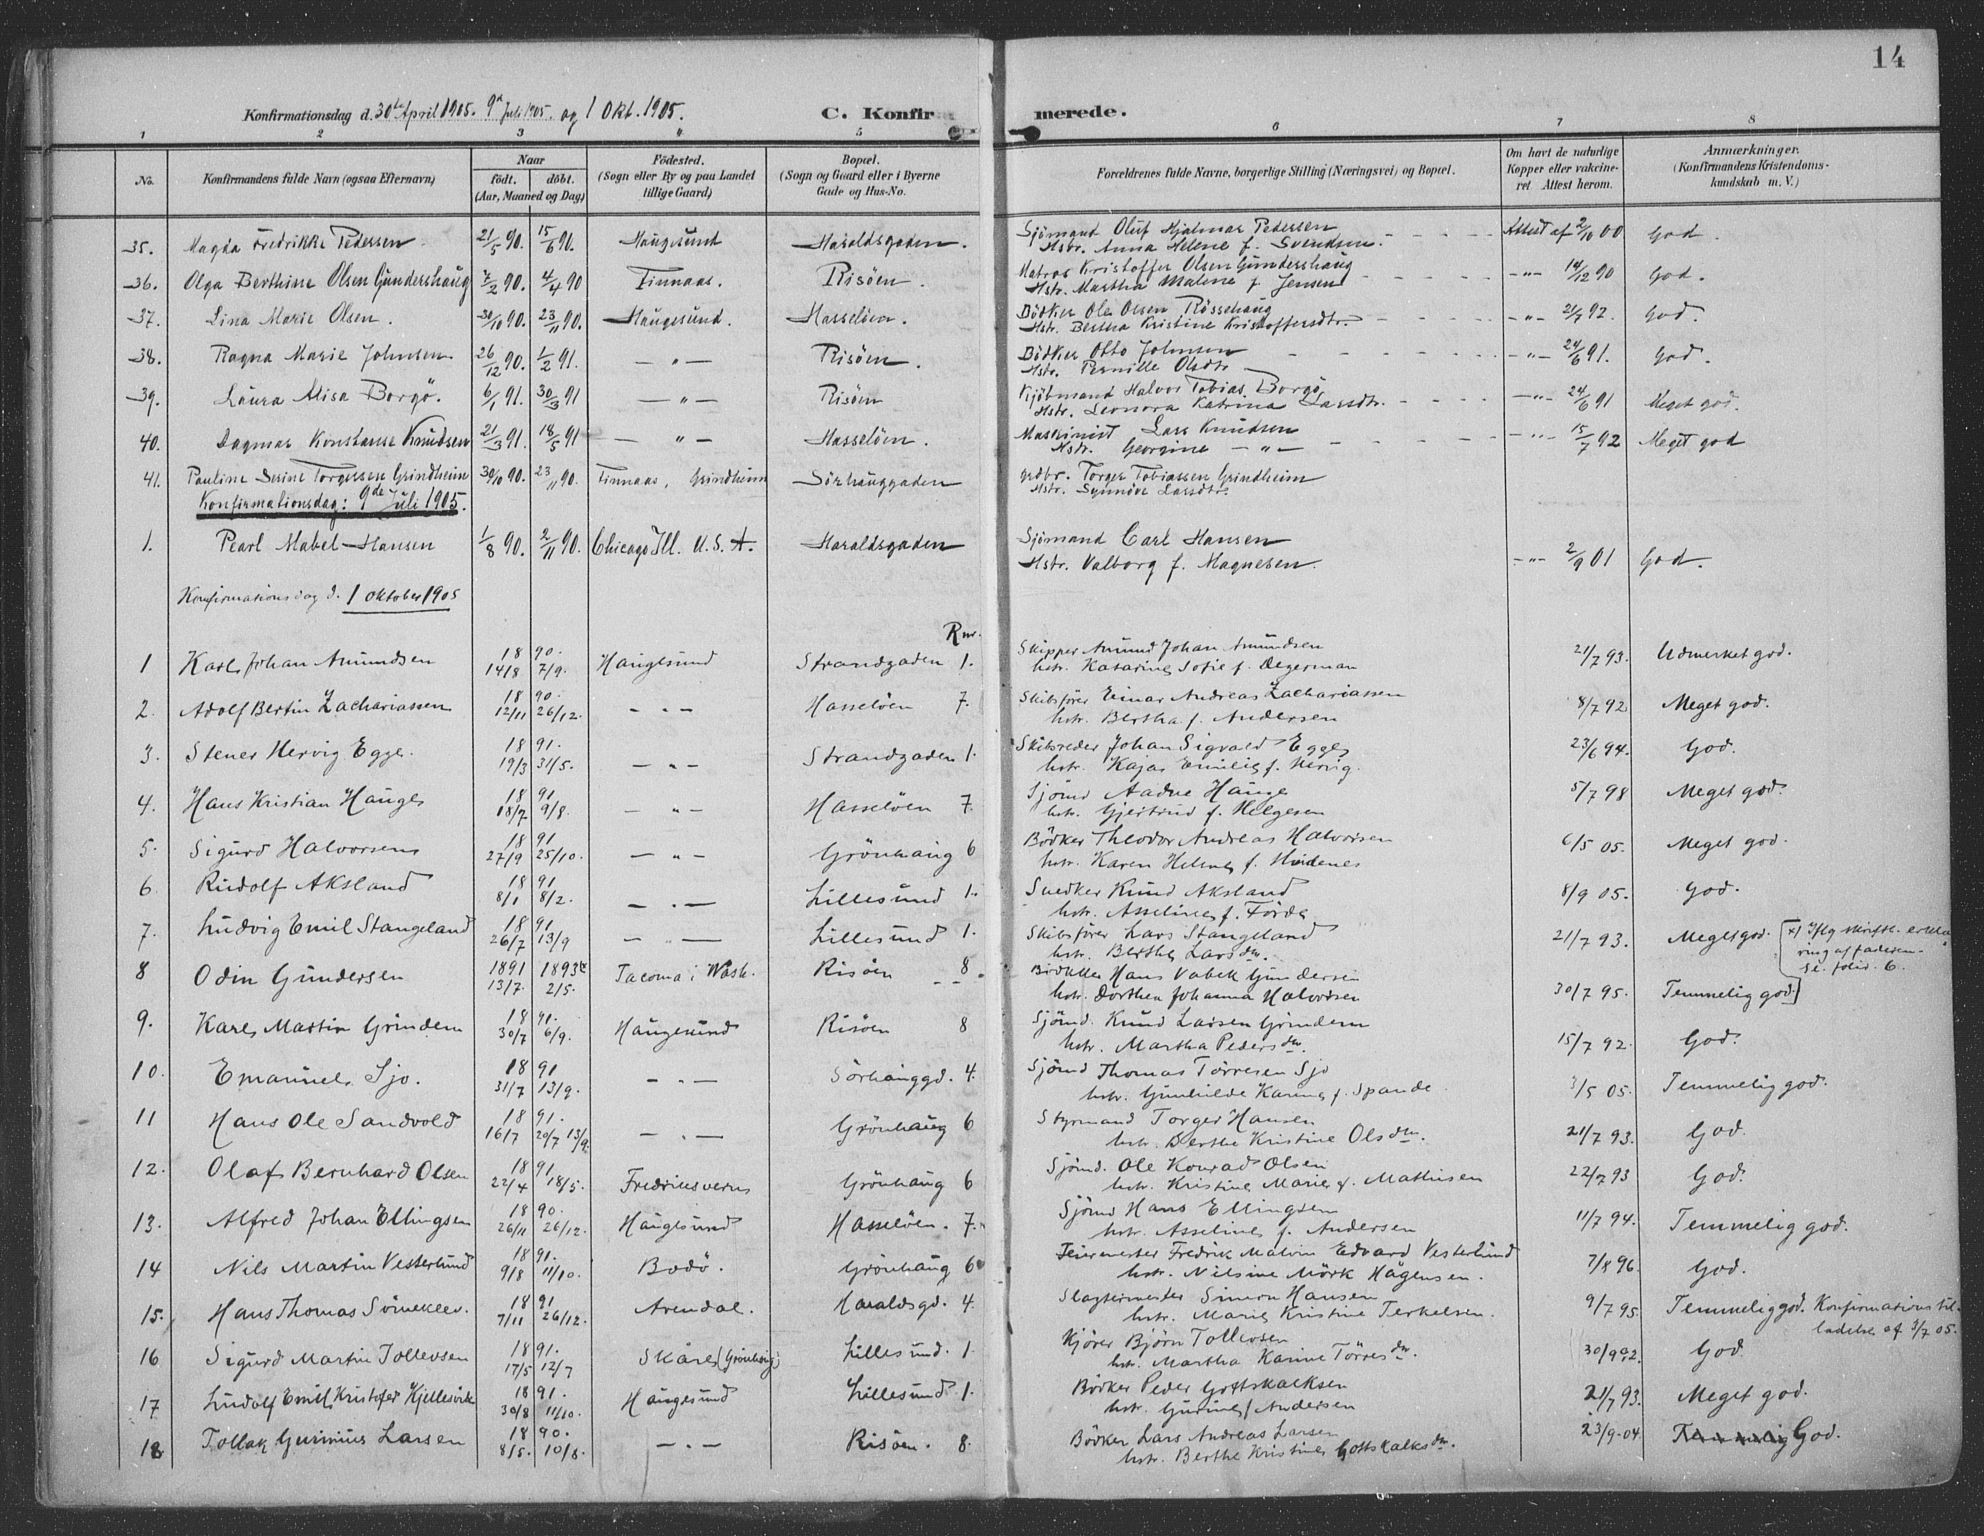 14
Konfirmationsdag d. 30te April 1905. 9de Juli 1905. og 1 Okt. 1905.
C. Konfirmerede.
1 2 3 " 5 6 7 8
No. Konfirmandens fulde Navn (ogsaa Efternavn) Naar født. døbt. (Aar, Maaned og Dag) Fødested. (Sogn eller By og paa Landet tillige Gaard) Bopæl. (Sogn og Gaard eller i Byerne Gade og Hus-No. Forældrenes fulde Navne, borgerlige Stilling (Næringsvei) og Bopæl. Om havt de naturlige Kopper eller vakcineret Attest herom. Anmærkninger. (Konfirmandens Kristendomskundskab m. V.)
35. Magda Fredrikke Pedersen 21/5 90. 15/6 90. Haugesund Haraldsgaden. Sjömand Oluf Hjalmar Pedersen Attest af 2/10 00 God.
Hstr. Anna Helene f. Svendsen.
36. Olga Berthine Olsen Gundershaug 7/2 90. 4/4 90 Finnaas. Risöen. Matros Kristoffer Olsen Gundershaug -"- 14/12 90 God.
Hstr. Martha Malene f. Jensen
37. Lina Marie Olsen. 30/10 90. 23/11 90. Haugesund. Hasselöen. Bödker Ole Olsen Rössehaug -"- 21/7 92. God.
Hstr. Bertha Kristine Kristoffersdtr.
38. Ragna Marie Johnsen 26/12 90. 1/2 91. — " — Risöen. Bödker Otto Johnsen -"- 24/6 91. God.
Hstr. Pernille Olsdtr
39. Laura Alisa Borgö. 6/1 91. 30/3 91 — " — Risöen Kjöbmand Halvor Tobias Borgö -"- 24/6 91 Meget god.
Hstr. Leonora Katrina Larsdtr.
40. Dagmar Konstanse Knudsen 21/3 91. 18/5 91 — " — Hasselöen. Maskinist Lars Knudsen -"- 15/7 92 Meget god
Hstr. Georgine — " —
41. Pauline Serine Torgersen Grindheim 30/10 90. 23/11 90. Finnaas, Grindheim Sörhauggaden Grdbr. Torger Tobiassen Grindheim
Hstr. Synnöve Larsdtr.
Konfirmationsdag: 9de Juli 1905.
1. Pearl Mabel Hansen 1/8 90. 2/11 90. Chicago Ill. U.S.A. Haraldsgaden Sjömand Carl Hansen
Hstr. Valborg f. Magnesen. -"- 2/9 01 God.
Konfirmationsdag d. 1 Oktober 1905
R nr.
1 Karl Johan Amundsen 1890. 14/8 7/9. Haugesund Strandgaden 1. Skipper Amund Johan Amundsen 21/7 93. Udmerket god.
hstr. Katarine Sofie f. Degerman
2. Adolf Bertin Zachariassen 1890. 12/11 26/12. — " — Hasselöen 7. Skibsförer Einar Andreas Zachariassen 8/7 92 Meget god.
hstr. Bertha f. Andersen
3. Stener Hervig Egge. 1891. 19/3 31/5. — " — Strandgaden 1. Skibsreder Johan Sigvald Egge 23/6 94. God.
hstr. Kaja Emilie f. Hervig.
4. Hans Kristian Hauge 1891 18/7 9/8. — " — Hasselöen 7. Sjömd Aadne Hauge 5/7 98 Meget god.
hstr. Gjertrud f. Helgesen
5. Sigurd Halvorsen 1891 27/9 25/10. — " — Grönhaug 6 Bödker Theodor Andreas Halvorsen 6/5 05. Meget god.
hstr. Karen Helene f.
6. Rudolf Aksland 1891 8/1 8/2. — " — Lillesund 1. Snedker Knud Aksland 8/9 05. God.
hstr. Asseline f. Förde
7. Ludvig Emil Stangeland 1891 26/7 13/9 — " — Lillesund 1. Skibsförer Lars Stangeland 21/7 93. Meget god.
hstr. Berthe Larsdtr.
x) Iflg skriftl. erklæring af faderen. se folio 6.
8 Odin Gundersen 1891 13/7. 1893 2/5. Tacoma i Wash. Risöen 8. Bödker Hans Vabek Gundersen
hstr. Dorthea Johanna Halvorsen 30/7 95. Temmelig god.
9. Karl Martin Grindem 1891. 30/7 6/9. Haugesund Risöen 8 Sjömd. Knud Larsen Grindem
hstr. Martha Pedersdtr. 15/7 92. God.
10. Emanuel Sjo. 1891 31/7 13/9. — " — Sörhauggd. 4. Sjömd Thomas Torresen Sjo
hstr. Gunhilde Karine f. Spande. 3/5 05. Temmelig god.
11 Hans Ole Sandvold 1891. 16/7 20/7 13/9. — " — Grönhaug 6 Styrmand Torger Hansen
hstr. Berthe Kristine Olsdtr. 21/7 93. God.
12. Olaf Bernhard Olsen 1891 22/4 18/5. Fredriksvern Grönhaug 6 Sjömd. Ole Konrad Olsen
hstr. Kristine Marie f. Mathisen 22/7 93 God.
13. Alfred Johan Ellingsen 1890. 26/11 26/12. Haugesund Hasselöen. 7. Sjömd Hans Ellingsen
hstr. Asseline f. Andersen 11/7 94. Temmelig god.
14 Nils Martin Vesterlund 1891. 9/8 11/10. Bodö. Grönhaug 6 Feiermester Fredrik Malvin Edvard Vesterlund
hstr. Nilsine Mörk Hagensen. 7/8 96. God.
15. Hans Thomas Sömeklev. 1891 7/11 26/12. Arendal. Haraldsgd. 4. Slagtermester Simon Hansen
hstr. Marie Kristine Terkelsen. 9/7 95. Temmelig god. Konfirmationstilladelse af 3/7 05.
16 Sigurd Martin Tollevsen 1891. 17/5 12/7 Skåre (Grönhaug) Lillesund. 1. Kjörer Björn Tollevsen
hstr. Martha Karine Törresdtr. 30/9 92. God
17 Ludolf Emil Kristofer Kjellesvik 1891. 30/8 11/10. Haugesund Lillesund 1. Bödker Peder Gottskalksen
hstr. Gurine f. Andersen 21/7 93. Meget god.
18 Tollak Gunnius Larsen 1890. 8/5. 10/8. — " — Risöen. 8. Bödker Lars Andreas Larsen
hstr. Berthe Kristine Gottskalksdtr. 23/9 04. Temmelig God.